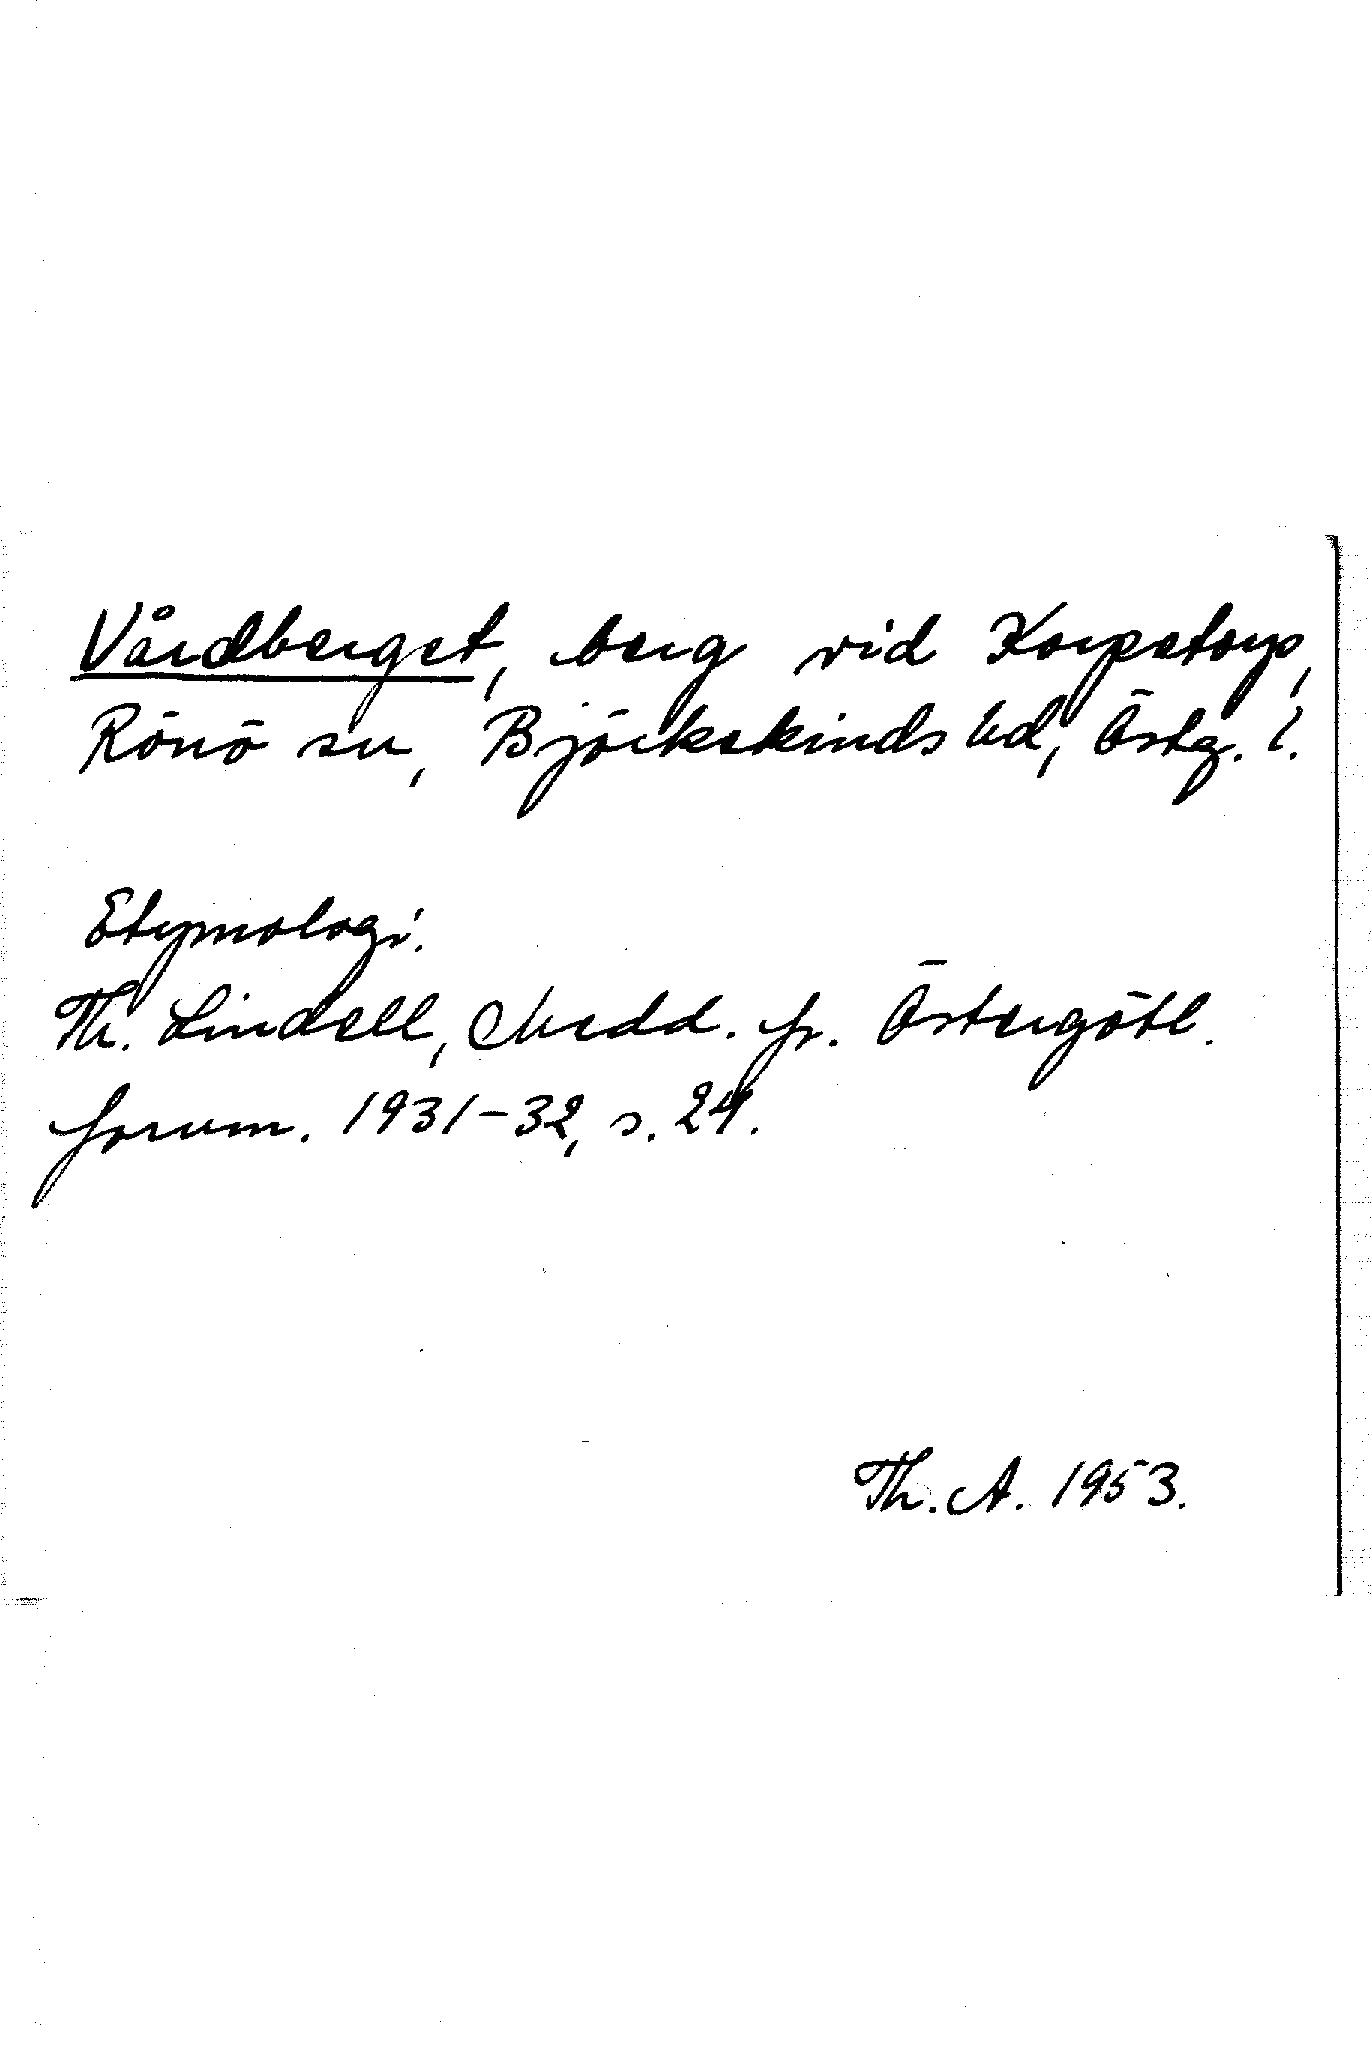 Vårdberget, berg vid Korpetorp,
Rönö sn, Björkekinds hd, Östg. l.
Etymologi.
Th. Lindell, Medd. fr. Östergötl.
fornm. 1931-32, s. 24.
Th. A. 1953.